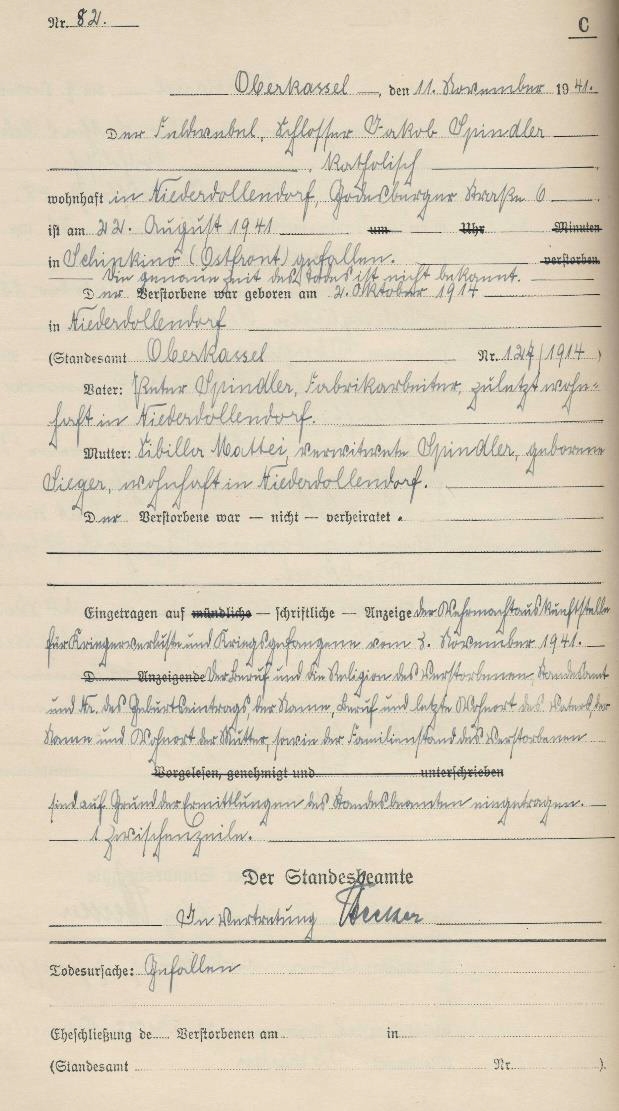 Nr. 82.
C
Oberkassel, den 11. November 1941.
Der Feldwebel, Schlosser Jakob Spindler
, katholisch
wohnhaft in Niederdollendorf, Godesburger Straße 6
ist am 22. August 1941 um Uhr Minuten
in Schipkino (Ostfront) gefallen. verstorben.
Die genaue Zeit des Todes ist nicht bekannt.
Der Verstorbene war geboren am 2. Oktober 1914
in Niederdollendorf
(Standesamt Oberkassel Nr. 127/1914)
Vater: Peter Spindler, Fabrikarbeiter, zuletzt wohn-
haft in Niederdollendorf.
Mutter: Sibilla Mattei, verwitwete Spindler, geborene
Sieger, wohnhaft in Niederdollendorf.
Der Verstorbene war — nicht — verheiratet.
Eingetragen auf mündliche — schriftliche — Anzeige der Wehrmachtauskunftstelle
für Kriegerverluste und Kriegsgefangene vom 3. November 1941.
D Anzeigende Der Beruf und die Religion des Verstorbenen, Standesamt
und Nr. des Geburtseintrags, der Name, Beruf und letzte Wohnort des Vaters, der
Name und Wohnort der Mutter, sowie der Familienstand des Verstorbenen
Vorgelesen, genehmigt und unterschrieben
sind auf Grund der Ermittlungen des Standesbeamten eingetragen.
1 Zwischenzeile.
Der Standesbeamte
In Vertretung
Todesursache: Gefallen
Eheschließung de Verstorbenen am in
(Standesamt Nr. ).